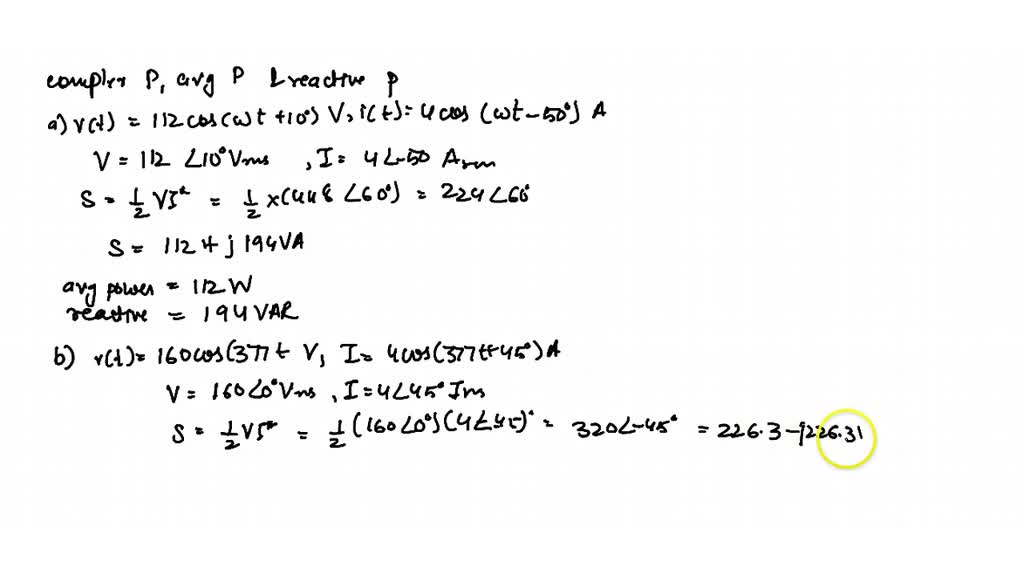 complex P, avg P & reactive p
a) v(t) = 112 cos(ωt +10°) V, i(t)= 4 cos (ωt - 50°) A
V = 112 ∠10° Vrms , I = 4∠-50 Arm
S = 1/2 VI* = 1/2 x(448 ∠60°) = 224∠60°
S = 112 + j 194VA
avg power = 112 W
reactive = 194 VAR
b) v(t)= 160cos(377t V, I= 4cos(377t+45°) A
V = 160∠0° Vrms , I = 4∠45° Irms
S = 1/2 VI* = 1/2 (160∠0°)(4∠45)* = 320∠-45° = 226.3 - j226.31